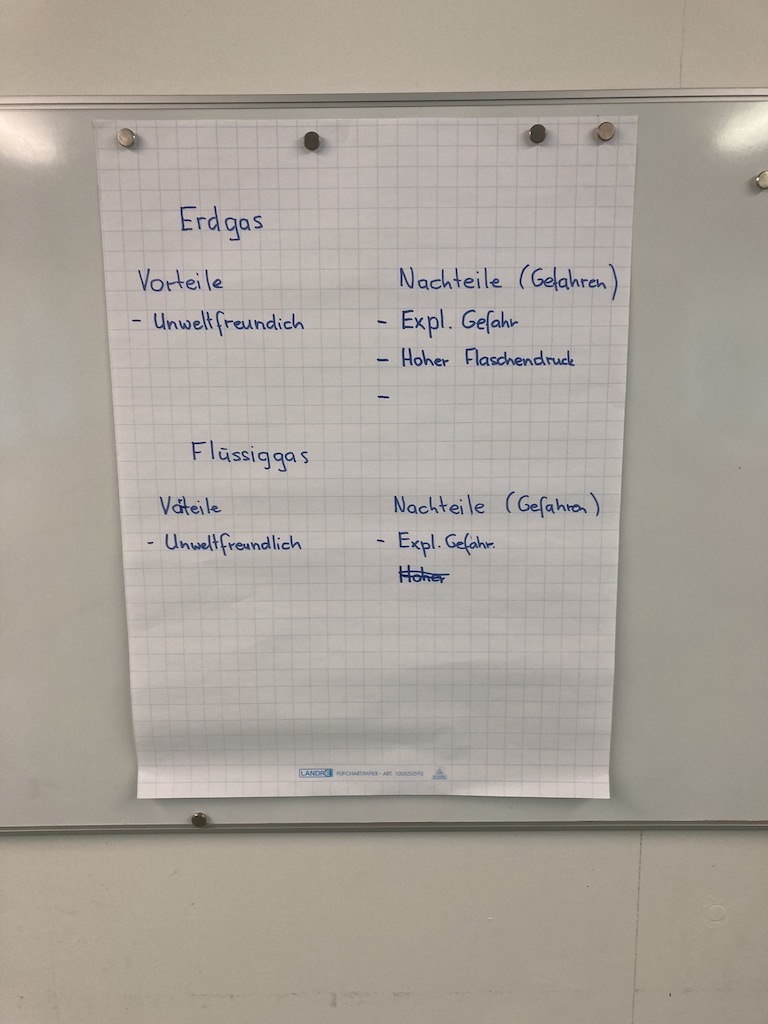 Erdgas
Vorteile Nachteile (Gefahren)
- Unweltfreundich - Expl. Gefahr
- Hoher Flaschendruck
-
Flüssiggas
Voteile Nachteile (Gefahren)
- Unweltfreundlich - Expl. Gefahr.
Hoher
LANDRÉ FLIPCHARTPAPIER - ART. 100050592